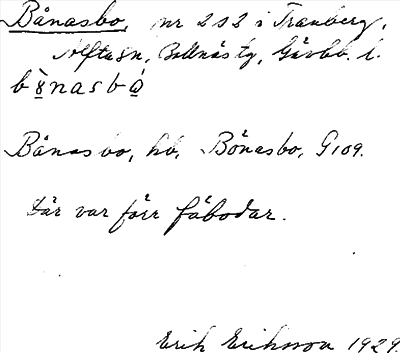 Bånasbo, nr 2 o 3 i Tranberg,
Alfta sn, Bollnäs tg, Gävleb. l.
Bånasbo, hb. Bönesbo, G 109.
Där var förr fäbodar.
Erik Eriksson 1929.